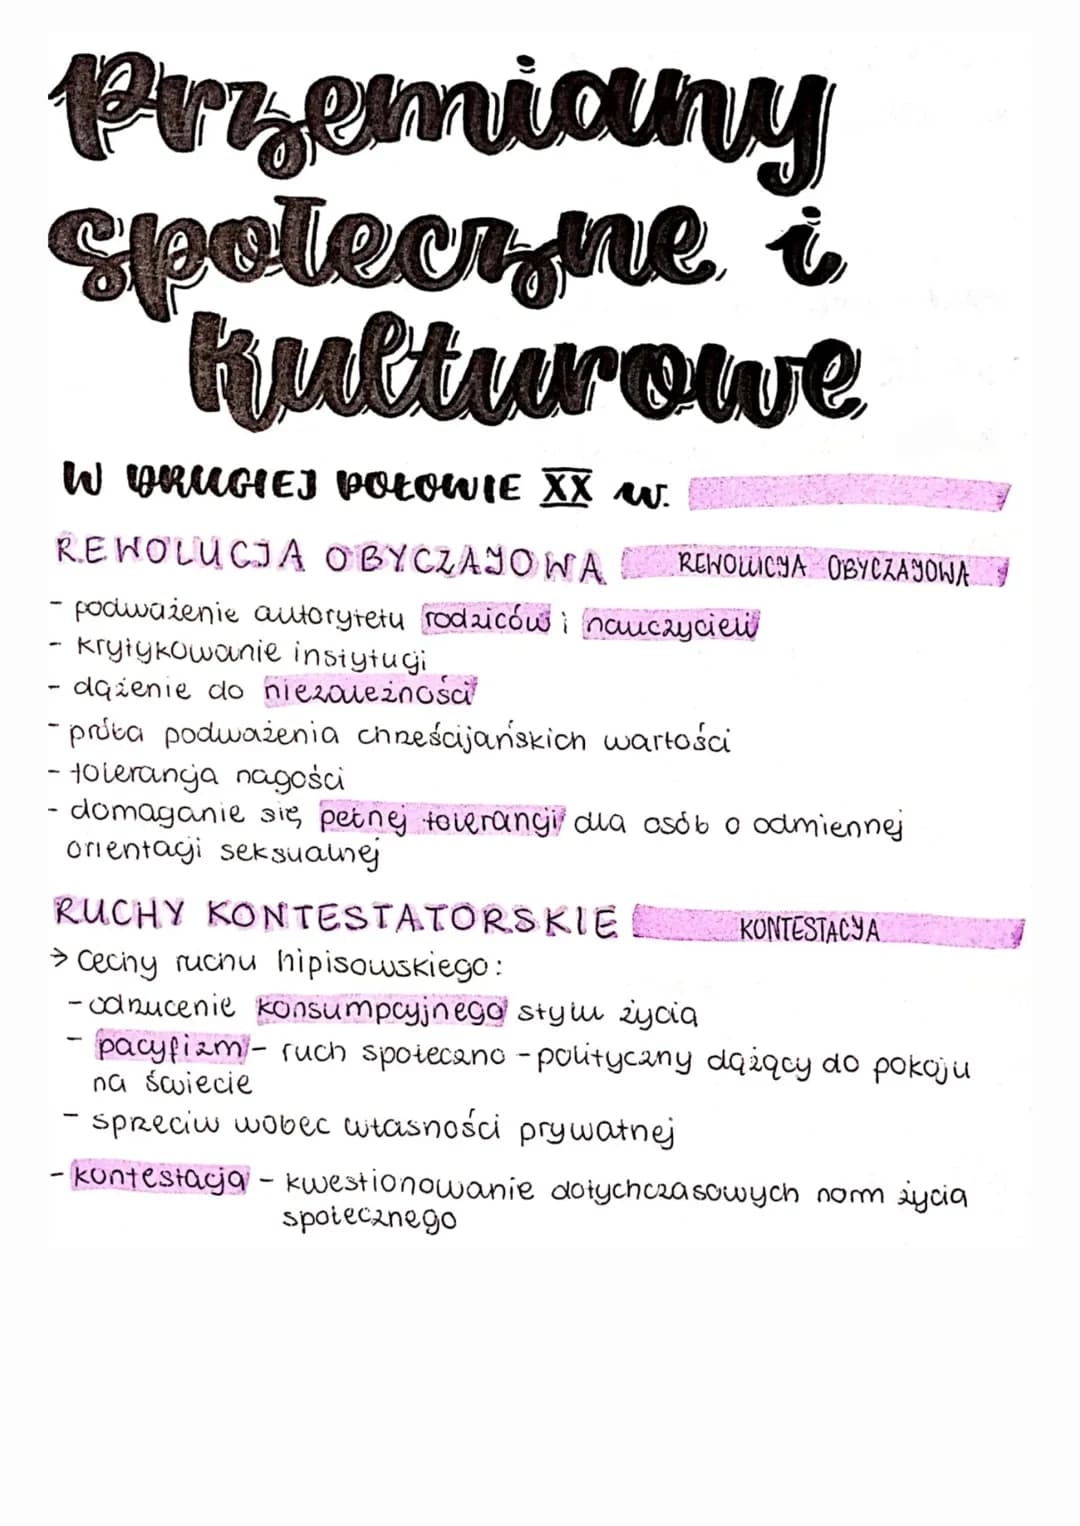 Przemiany
społeczne i
kulturowe
W DRUGIEJ POŁOWIE XX w.
REWOLUCJA OBYCZAJOWA REWOLUCJA OBYCZAJOWA
- podważenie autorytetu rodziców i nauczycieli
- krytykowanie instytucji
- dążenie do niezależności
- próba podważenia chrześcijańskich wartości
- tolerancja nagości
- domaganie się pełnej tolerancji dla osób o odmiennej
orientacji seksualnej
RUCHY KONTESTATORSKIE KONTESTACJA
→ Cechy ruchu hipisowskiego:
- odrzucenie konsumpcyjnego stylu życia
- pacyfizm - ruch społeczno - polityczny dążący do pokoju
na świecie
- sprzeciw wobec własności prywatnej
- kontestacja - kwestionowanie dotychczasowych norm życia
społecznego